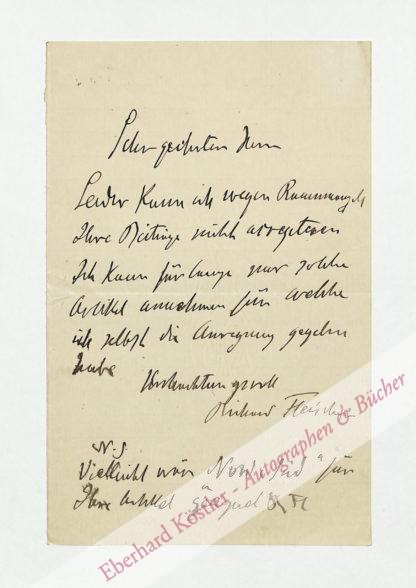 Sehr geehrter Herr
Leider kann ich wegen Raummangels
Ihre Beiträge nicht acceptieren
Ich kann für lange nur solche
Artikel annehmen für welche
ich selbst die Anregung gegeben
habe
Hochachtungsvoll
Richard Fleischer
N.S.
Vielleicht wär „Nord u Süd“ für
Ihre Artikel
Eberhard Köstler - Autographen & Bücher